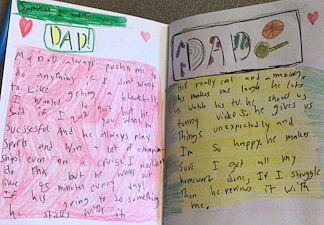 DAD!
My DAD always push me to
do anything if I dont want
to. Like
I wanted getting a blackbelt
said if I quit but he
you won't be
Successful And he always play
Sports and won lot of champion
ships even on a cruse. I wouldn't
do this but he works out
like 45 minutes every day.
If his going to do something
he sticks with it
DAD
He's really cool and amazing.
he makes me laugh he lets
us watch his tv. he shows us
funny videos. he gives us
Things unexpectedly and
Im so happy. he makes
Sure I get all my
homework done, If I struggle
Then he reviews it with
me.